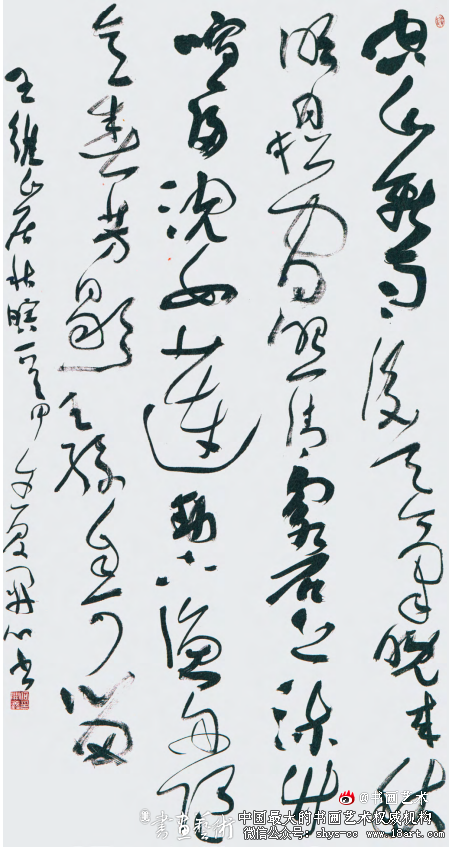 空山新雨後天氣晚來秋
明月松間照清泉石上流竹
喧歸浣女蓮動下漁舟隨
意春芳歇王孫自可留
王維山居秋暝一甲午夏書
@书画艺术
書畫藝術
中国最大的书画艺术权威机构
微信公众号：shys-cc www.18art.com